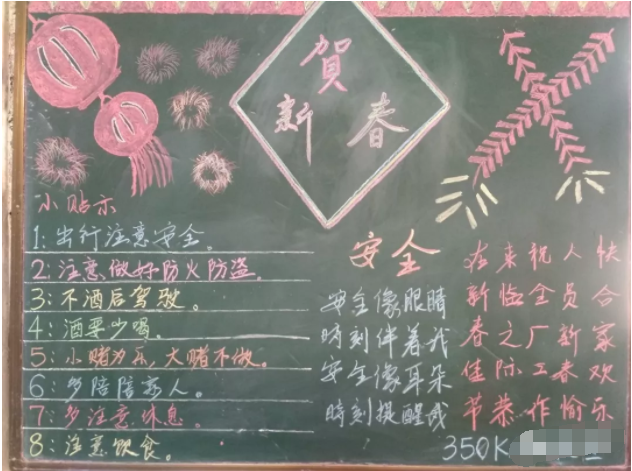 賀
新春
小贴示
1:出行注意安全。
2:注意做好防火防盗
3:不酒后驾驶。
4:酒要少喝。
5:小赌为乐,大赌不做。
6:多陪陪家人。
7:多注意休息。
8:注意饮食。
安全
安全像眼睛
时刻伴着我
安全像耳朵
時刻提醒我
在新春佳节
来临之际恭
祝全厂工作
人员新春愉
快合家欢乐
350K